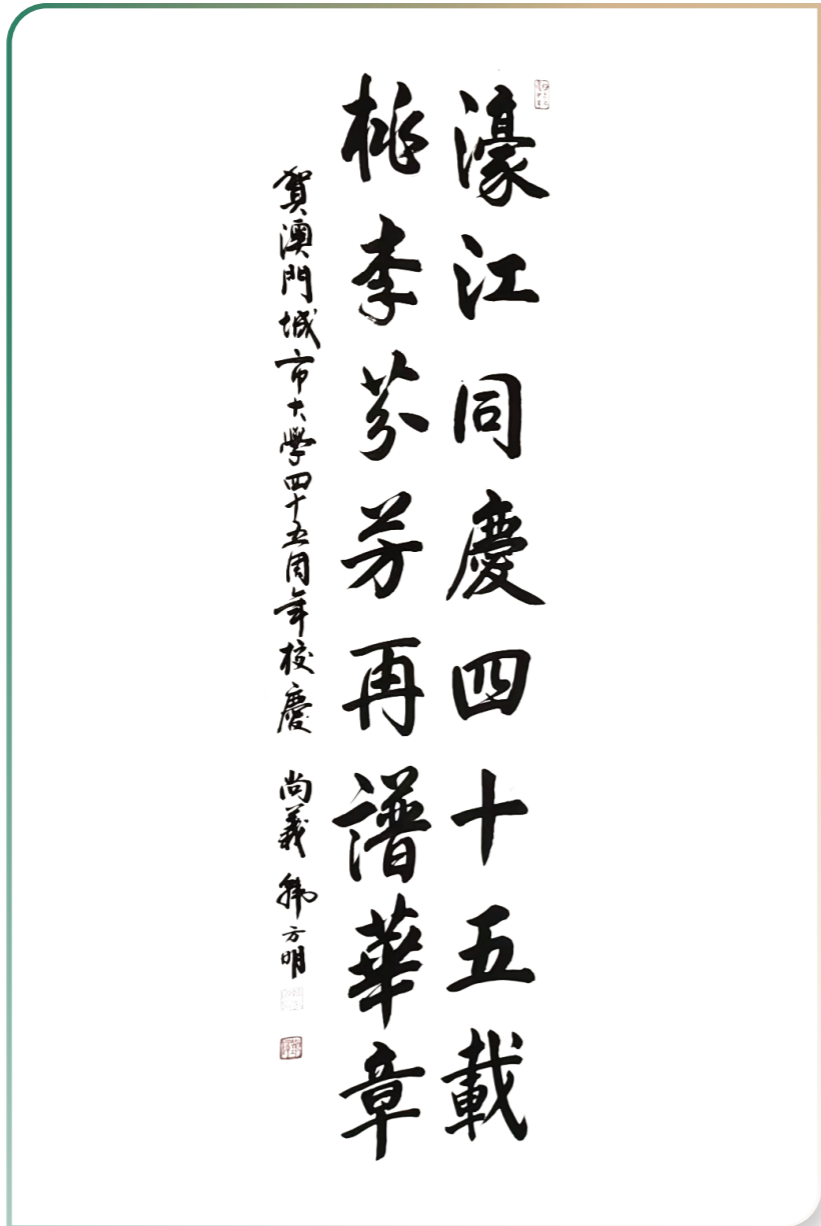 濠江同慶四十五載
桃李芬芳再譜華章
賀澳門城市大學四十五周年校慶 尚義 韩方明